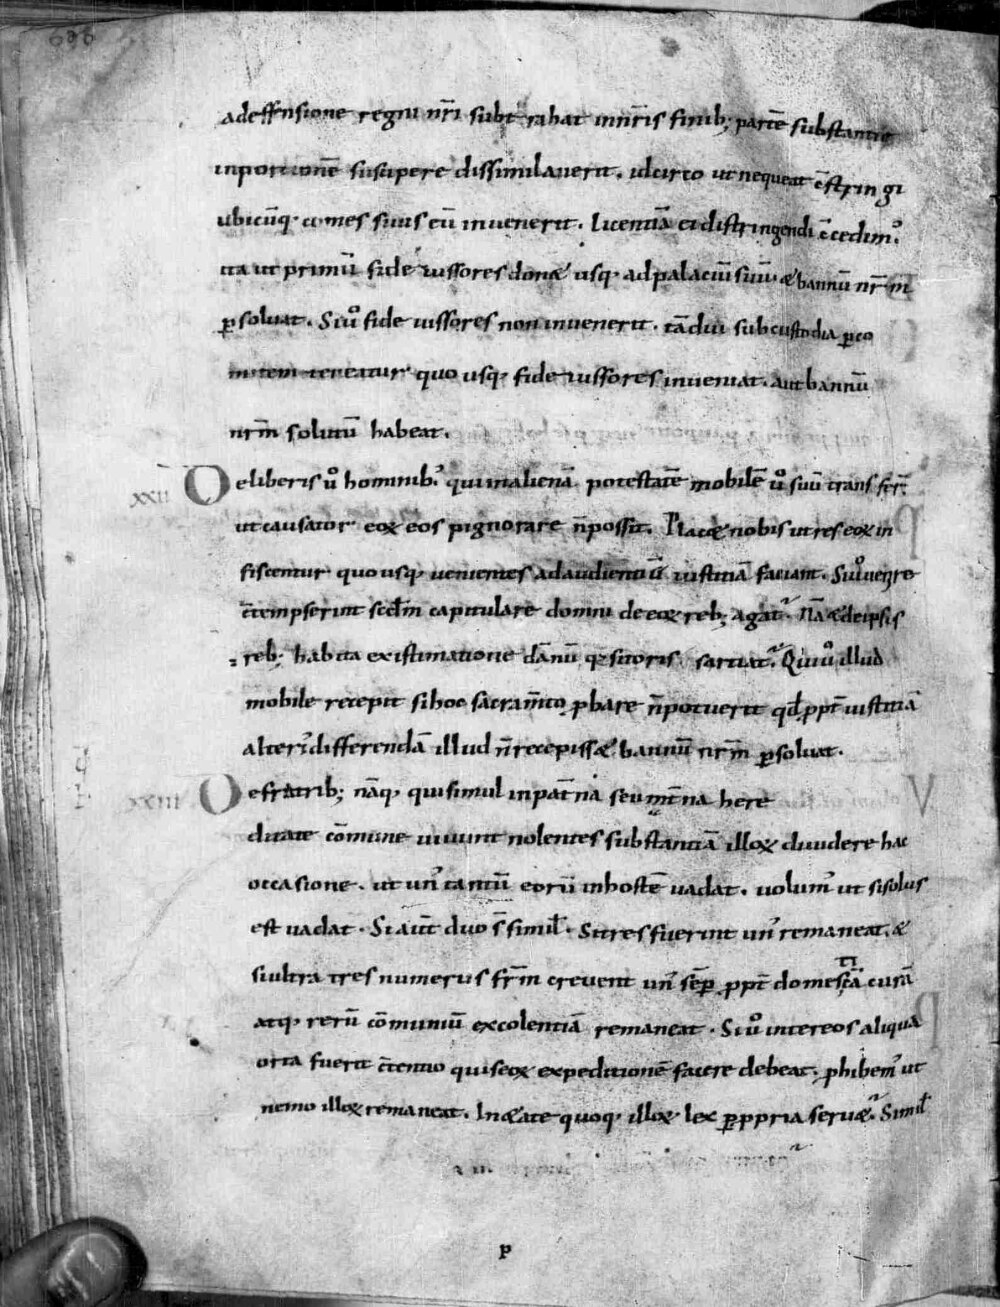 606
adeffensione regni nr̄i subt rahat inn̄ris finib; partē substantie
inportionē suscipere dissimilauerit. idcirco ut nequeat c̄stringi
ubicūq; comes suus eū inuenerit. licentiā ei distringendi c̄cedim᾽.
ita ut primū fide iussores don& usq; adpalaciū suū & bannū nr̄m
ꝑsoluat. Si ů fide iussores non inuenerit. tādiu subcustodia ꝑ co
mitem teneatur quo usq; fide iussores inueniat. aut bannū
nr̄m solutū habeat.
xxii Deliberis ů hominib᾽. qui inalienā potestatē mobilē ů suū trans fer̄.
ut causator eoꝝ eos pignorare n̄ possit. Plac& nobis ut res eoꝝ in
fiscentur quo usq; uenientes adaudientiā iustitiā faciant. Si ů uenire
c̄tempserint scd̄m capitulare domni de eoꝝ reb; agat᾽. Nā & deipsis
reb; habita existimatione dānū q̄sitoris sartiat᾽. Qui ů illud
mobile recepit si hoc sacram̄to ꝓbare n̄ potuerit qd̄ ꝓpt̄ iustitiā
alteri᾽ differendā illud n̄ recepiss& bannū nr̄m ꝑsoluat.
xxiii Defratrib; nāq; qui simul inpat̄na seu mt̄na here
ditate cōmune uiuunt nolentes substantiā illoꝝ diuidere hac
occasione. ut un᾽ tantū eorū inhostē uadat. uolum᾽ ut si solus
est uadat. Si aūt duo s̄ simil̄. Si tres fuerint un᾽ remaneat. &
si ultra tres numerus fr̄m creuerit un᾽ sēp ꝓpt̄ domesticā curā
atq; rerū cōmuniū excolentiā remaneat. Si ů inter eos aliqua
orta fuerit c̄tentio quis eoꝝ expeditionē facere debeat. ꝓhibem᾽ ut
nemo illoꝝ remaneat. In &ate quoq; illoꝝ lex ꝑ ꝓpria seru&᾽. Simil̄
p